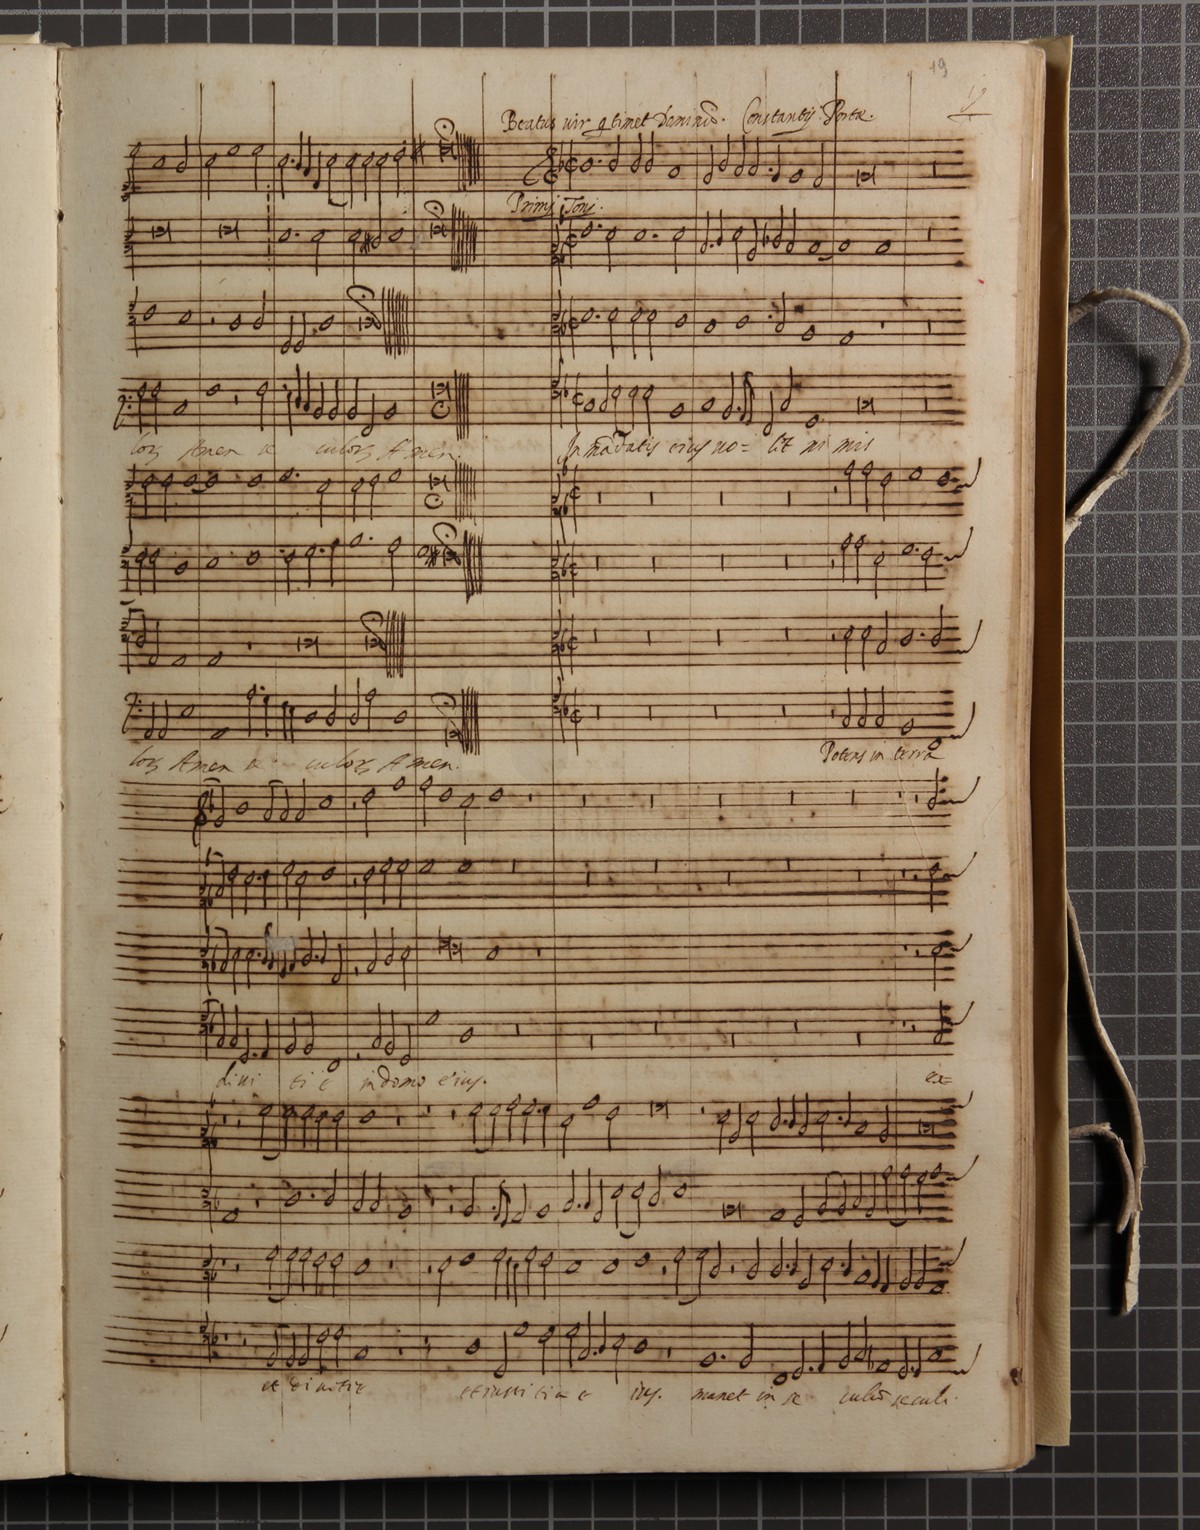 19
19
Beatus vir q timet Dominū. Constantij Portæ.
Primi Toni.
loꝝ Amen se culoꝝ Amen.
In mādatis eius uo= let ni mis
loꝝ Amen se culoꝝ Amen.
Potens in terra
diui ti e in domo eius.
ex
et diuitie et iusti tia e ius. manet in se culū seculi.